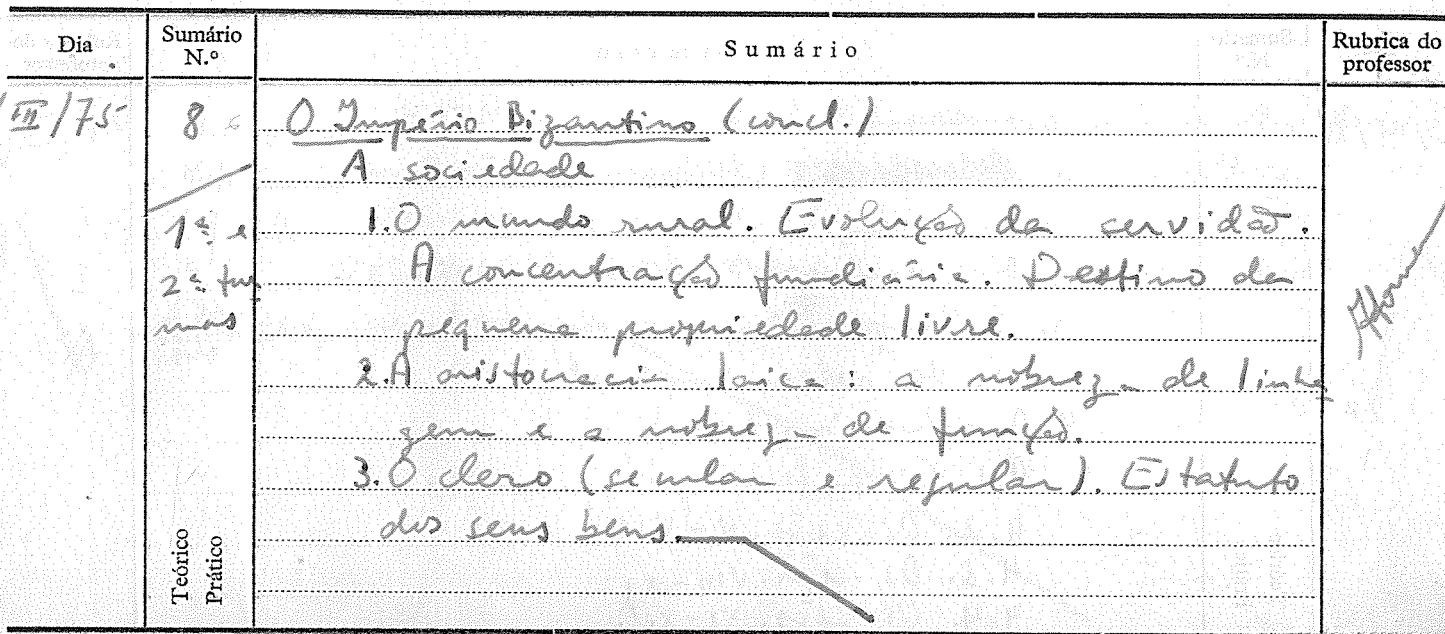 Dia
Sumário N.º
Sumário
Rubrica do professor
/III/75
8
O Império Bizantino (concl.)
A sociedade
1ª e
1. O mundo rural. Evolução da servidão.
2ª tur
A concentração fundiária. Destino da
mas
pequena propriedade livre.
2. A aristocracia laica: a nobreza de linha
gem e a nobreza de função.
3. O clero (secular e regular). Estatuto
dos seus bens.
Teórico
Prático